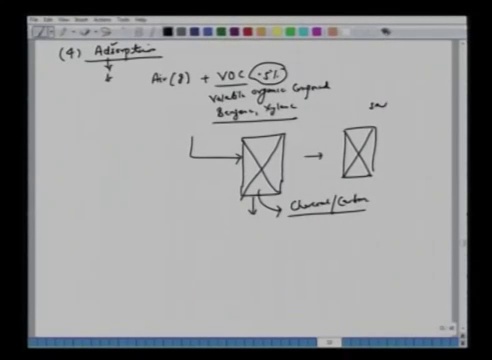 File Edit View Insert Actions Tools Help
(4) Adsorption
Air(g) + VOC (.5%)
Volatile organic Compound
Benzene, Xylene
Charcoal/Carbon